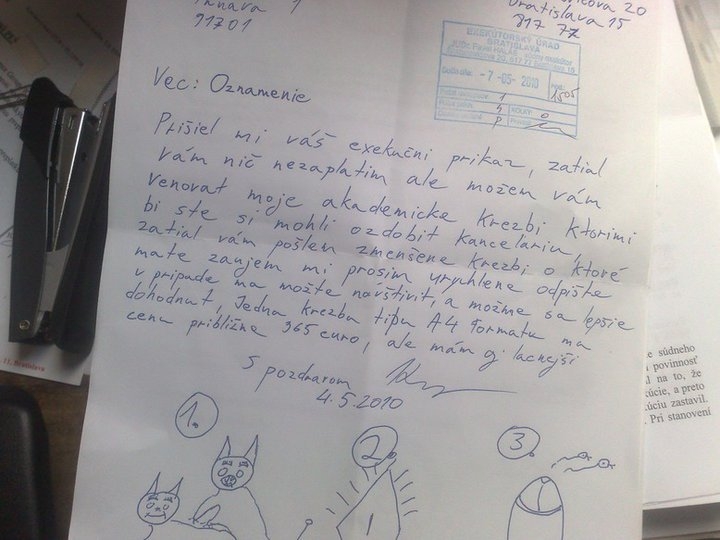 Trnava 1
91701
20
Bratislava 15
817 77
EXEKÚTORSKÝ ÚRAD
BRATISLAVA
-7-05-2010
1505
Vec: Oznamenie
Prišiel mi váš exekučni prikaz, zatial
vám nič nezaplatim ale možem vám
venovat moje akademicke krezbi ktorimi
bi ste si mohli ozdobit kancelariu,
zatial vám pošlem zmenšene krezbi o ktoré
mate zaujem mi prosim urychlene odpište
v pripade ma možte navštivit, a možme sa lepšie
dohodnut, Jedna krezba tipu A4 formatu ma
cenu približne 365 euro, ale mám aj lacnejši
S pozdravom
4.5.2010
1.
2.
3.
11. Bratislava
súdneho
povinnosť
na to, že
kúcie, a preto
kúciu zastavil.
Pri stanovení